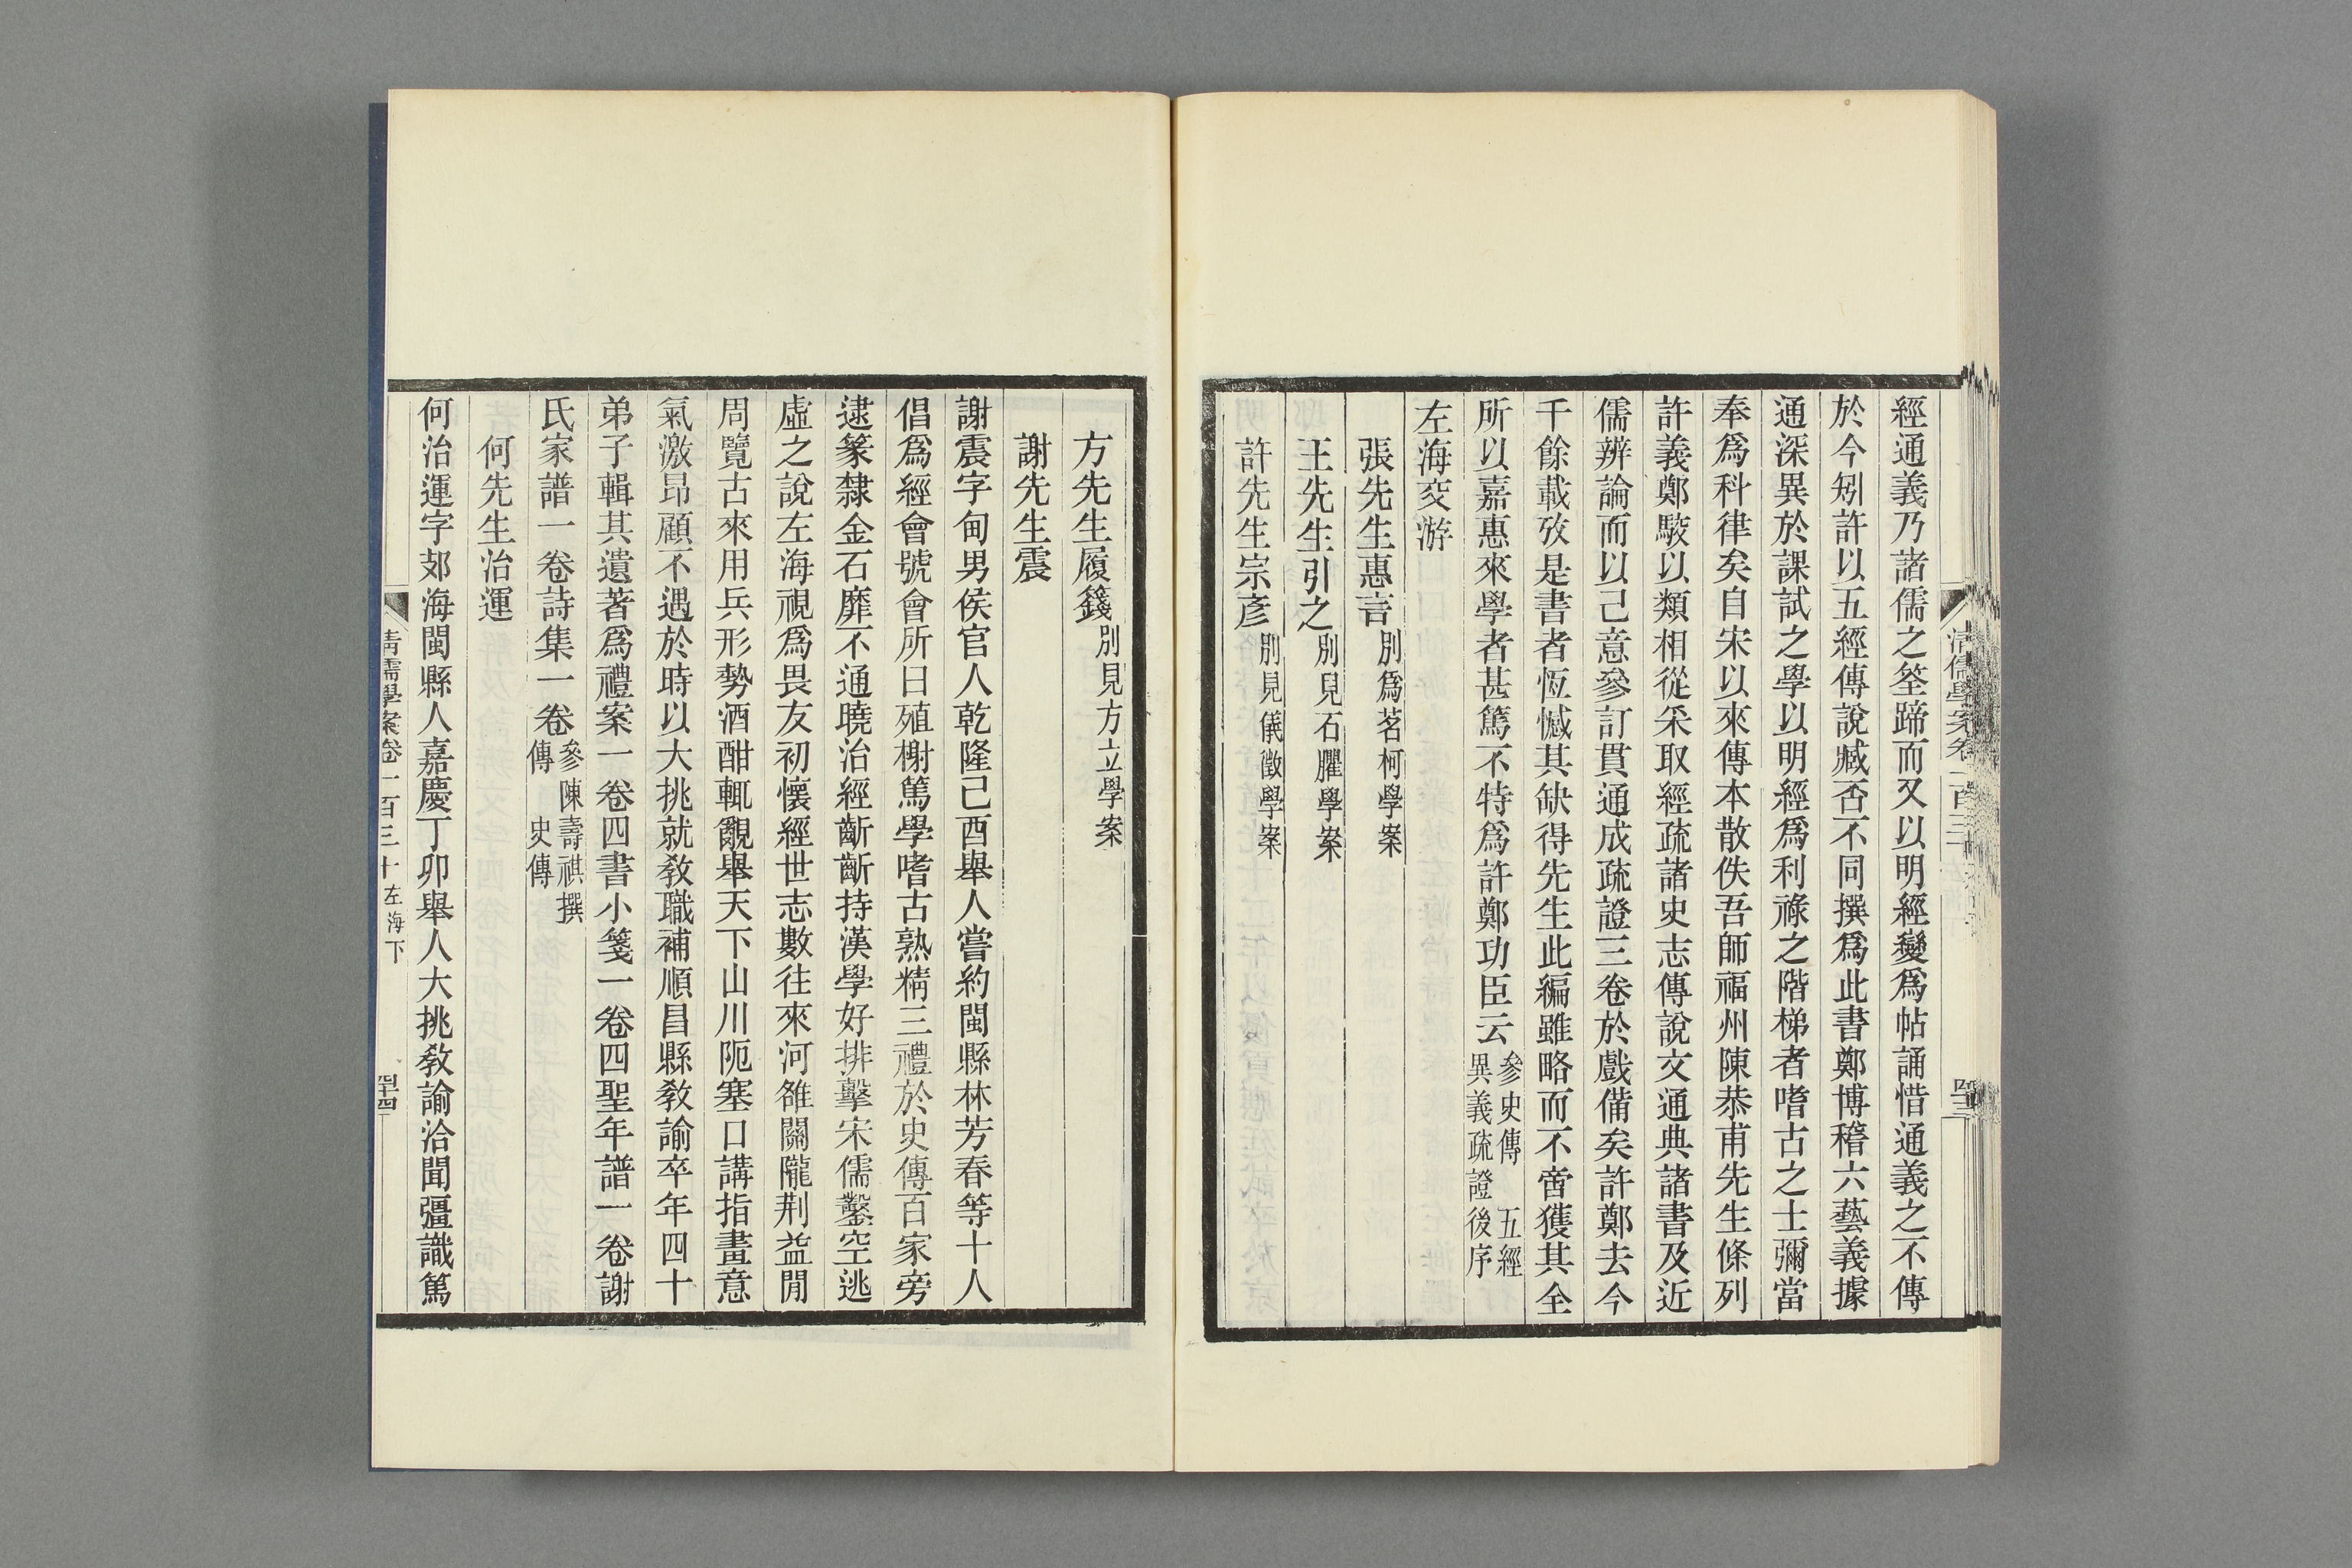 經通義乃諸儒之筌蹄而又以明經變爲帖誦惜通義之不傳
於今矧許以五經傳說臧否不同撰爲此書鄭博稽六藝義據
通深異於課試之學以明經爲利祿之階梯者嗜古之士彌當
奉爲科律矣自宋以來傳本散佚吾師福州陳恭甫先生條列
許義鄭駁以類相從采取經疏諸史志傳說文通典諸書及近
儒辨論而以己意參訂貫通成疏證三卷於戲備矣許鄭去今
千餘載攷是書者恆憾其缺得先生此編雖略而不啻獲其全
所以嘉惠來學者甚篤不特爲許鄭功臣云參史傳　五經
異義疏證後序
左海交游
張先生惠言別爲茗柯學案
王先生引之別見石臞學案
許先生宗彥別見儀徵學案
方先生履籛別見方立學案
謝先生震
謝震字甸男侯官人乾隆己酉舉人嘗約閩縣林芳春等十人
倡爲經會號會所曰殖榭篤學嗜古熟精三禮於史傳百家旁
逮篆隸金石靡不通曉治經齗齗持漢學好排擊宋儒鑿空逃
虛之說左海視爲畏友初懷經世志數往來河雒關隴荆益閒
周覽古來用兵形勢酒酣輒覼舉天下山川阨塞口講指畫意
氣激昂顧不遇於時以大挑就教職補順昌縣教諭卒年四十
弟子輯其遺著爲禮案一卷四書小箋一卷四聖年譜一卷謝
氏家譜一卷詩集一卷參陳壽祺撰
傳　史傳
何先生治運
何治運字郊海閩縣人嘉慶丁卯舉人大挑教諭洽聞彊識篤
清儒學案卷一百三十　左海下
四十四